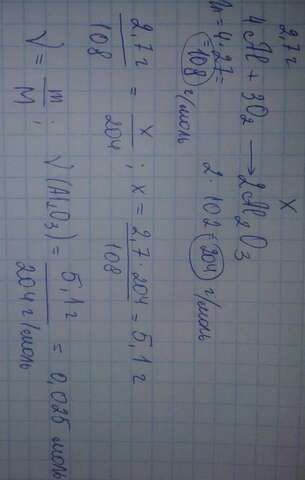 2,7 г x
4Al + 3O₂ → 2Al₂O₃
m = 4·27 =
= 108 г/моль 2·102 = 204 г/моль
2,7 г / 108 = x / 204 ; x = 2,7·204 / 108 = 5,1 г
ν = m / M ; ν (Al₂O₃) = 5,1 г / 204 г/моль = 0,025 моль